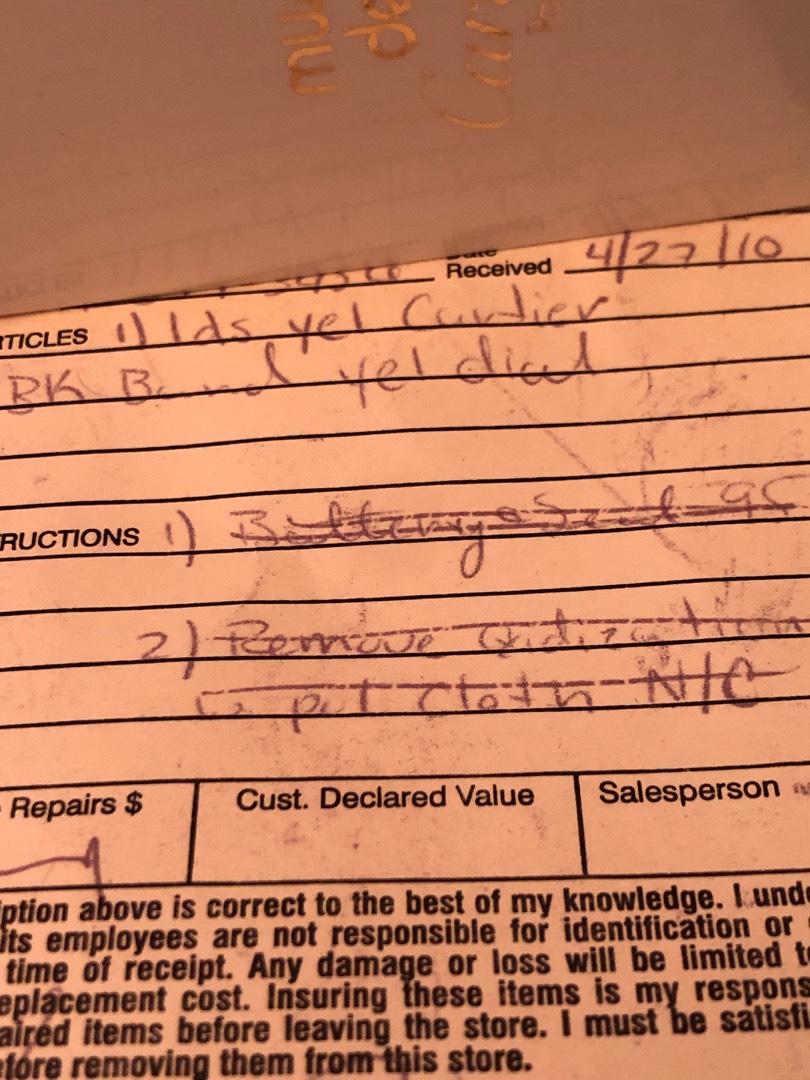 Received 4/27/10
TICLES 1) lds yel Cartier
BK Band yel dial
RUCTIONS 1) Battery & Seal 95
2) Remove Oxidization
pol cloth N/C
Repairs $
Cust. Declared Value
Salesperson
ption above is correct to the best of my knowledge. I unde
its employees are not responsible for identification or
time of receipt. Any damage or loss will be limited to
eplacement cost. Insuring these items is my respons
aired items before leaving the store. I must be satisfi
efore removing them from this store.